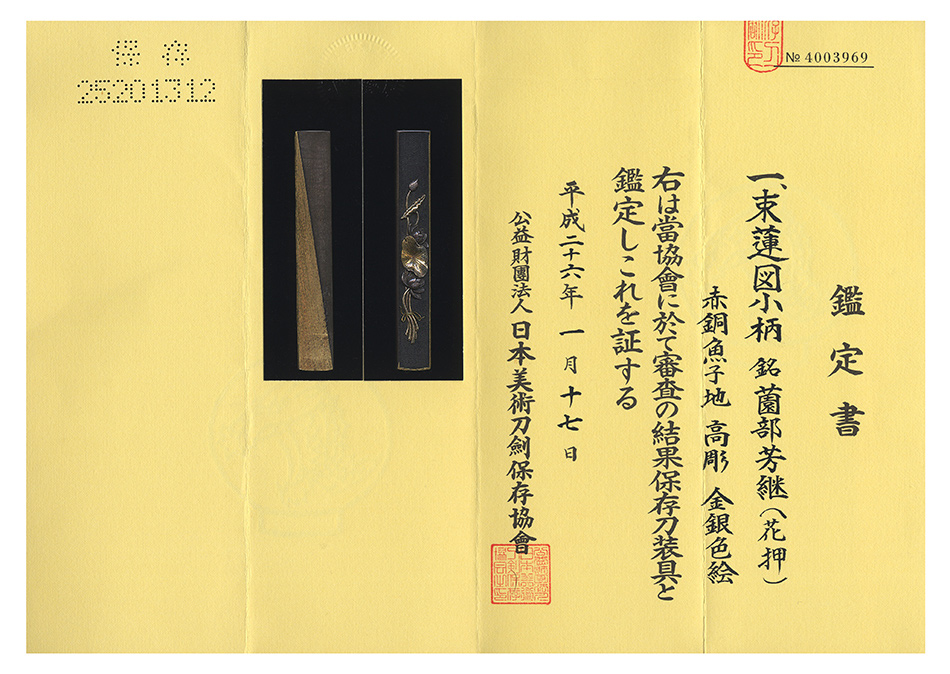 № 4003969
鑑定書
一、束蓮図小柄 銘 薗部芳継(花押)
赤銅魚子地 高彫 金銀色絵
右は當協會に於て審査の結果保存刀装具と
鑑定しこれを証する
平成二十六年 一月 十七日
公益財團法人 日本美術刀劍保存協會
保存
25201312